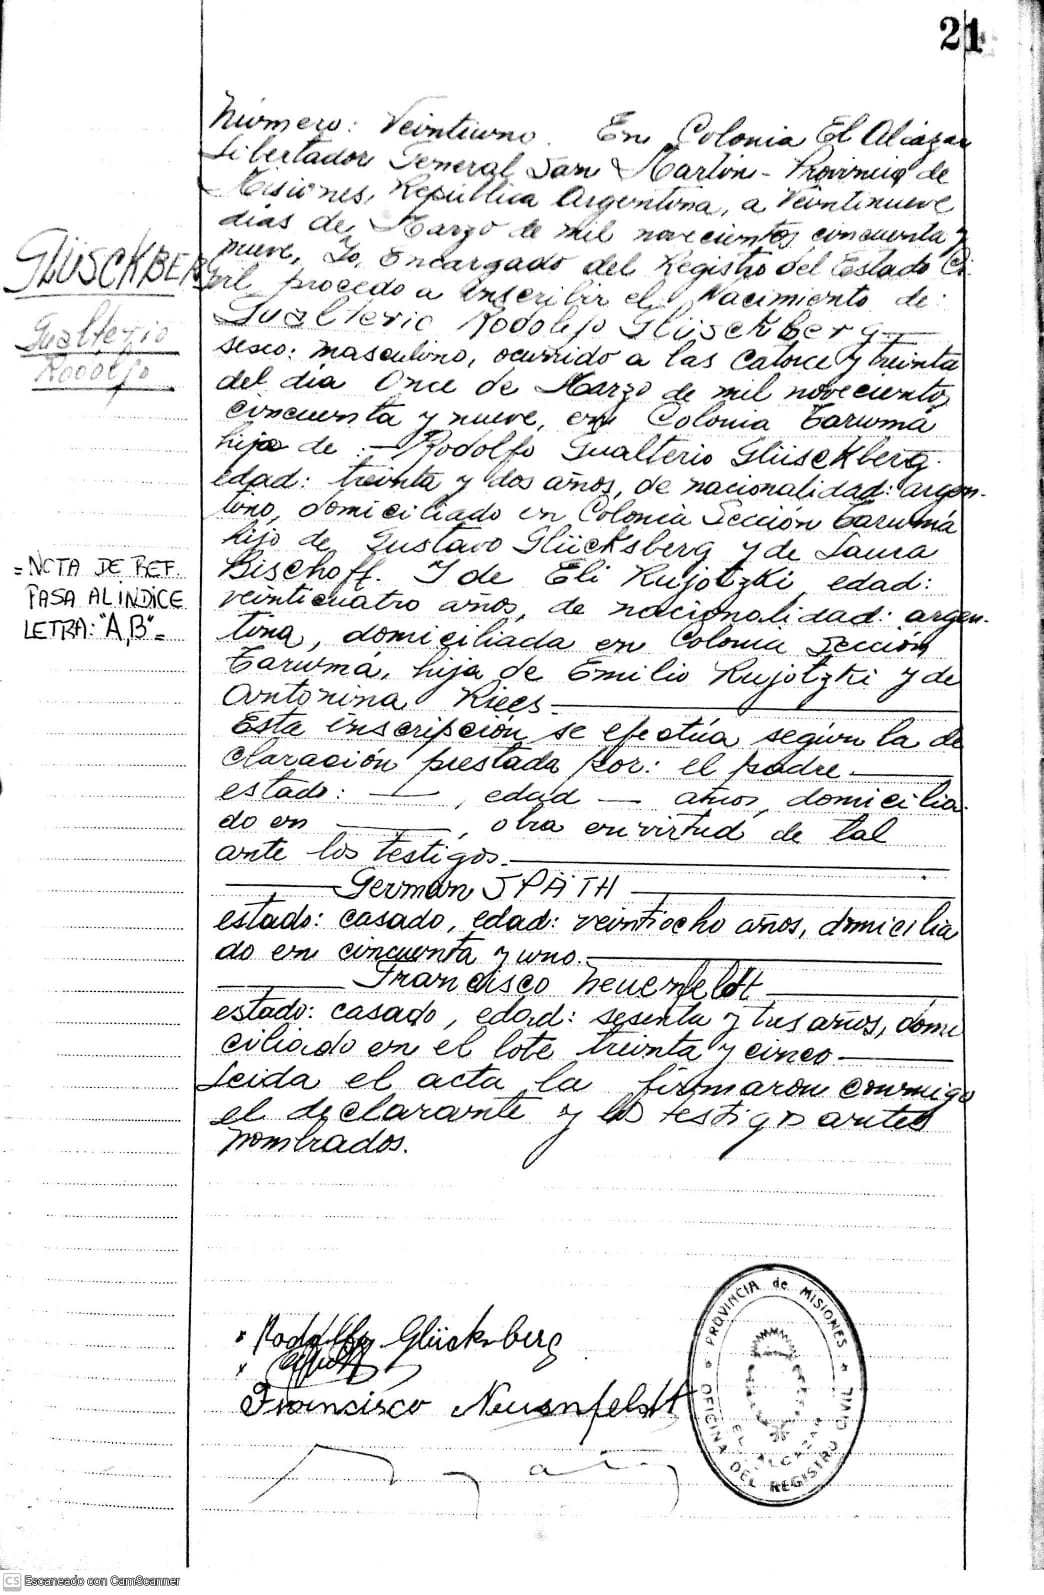 21
Número: Veintiuno. En Colonia El Alcázar
Libertador General San Martín - Provincia de
Misiones, República Argentina, a Veintinueve
días de Marzo de mil novecientos cincuenta y
nueve, Yo, Encargado del Registro del Estado Ci
vil procedo a inscribir el Nacimiento de:
Gualterio Rodolfo Glüsckberg
sexo: masculino, ocurrido a las catorce y treinta
del día Once de Marzo de mil novecientos
cincuenta y nueve, en Colonia Tarumá
hijo de: Rodolfo Gualterio Glüsckberg.
edad: treinta y dos años, de nacionalidad: argen-
tino, domiciliado en Colonia Sección Tarumá
hijo de Gustavo Glücksberg y de Laura
Bischoff. Y de Eli Kujotzki, edad:
veinticuatro años, de nacionalidad: argen-
tina, domiciliada en Colonia Sección
Tarumá, hija de Emilio Kujotzki y de
Antonina Riees.
Esta inscripción se efectúa según la de
claración prestada por: el padre
estado: — , edad — años, domicilia-
do en — , obra en virtud de tal
ante los testigos.
German SPÄTH
estado: casado, edad: veintiocho años, domicilia
do en cincuenta y uno.
Francisco Neuenfeldt
estado: casado, edad: sesenta y tres años, domi
ciliado en el lote treinta y cinco
Leida el acta la firmaron conmigo
el declarante y los testigos antes
nombrados.
GLÜSCKBERG
Gualterio
Rodolfo
=NOTA DE REF.
PASA AL INDICE
LETRA: "A,B"=
Rodolfo Glücksberg
Francisco Neuenfeldt
PROVINCIA de MISIONES
OFICINA DEL REGISTRO CIVIL
EL ALCAZAR
CS Escaneado con CamScanner